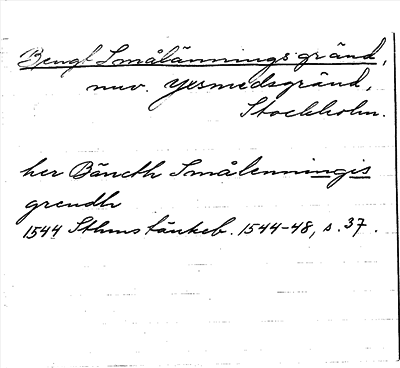 Bengt Smålännings gränd,
nuv. Yxsmedsgränd,
Stockholm.
her Bäncth Smålenningis
grendh
1544 Sthms tänkeb. 1544-48, s. 37.